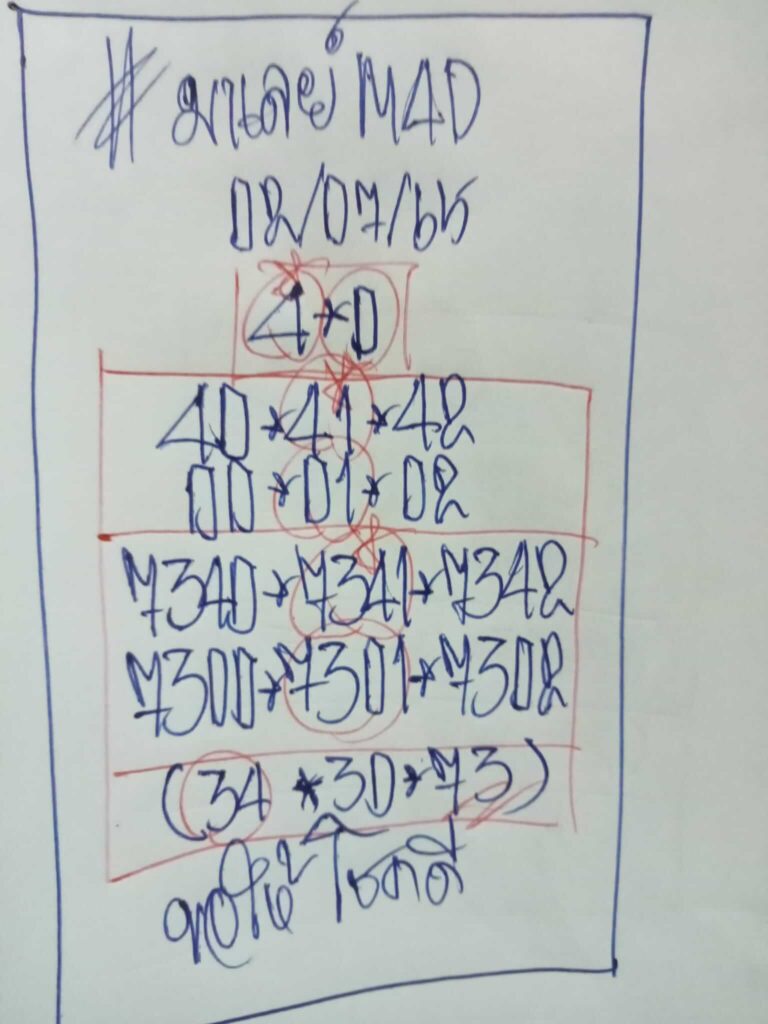 # มาเลย์ M4D
02/07/65
4*0
40*41*42
00*01*02
7340*7341*7342
7300*7301*7302
(34*30*73)
ขอให้โชคดี